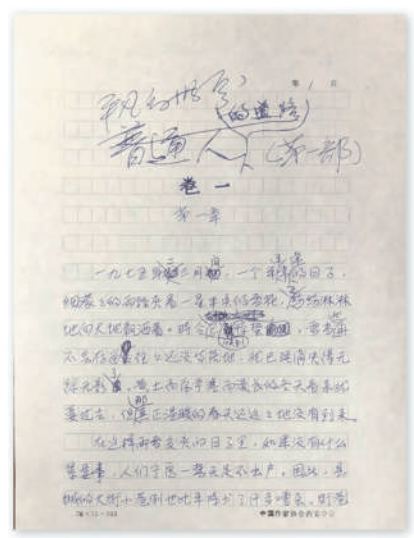 第 1 页
平凡的世界
普通人的道路(第一部)
卷一
第一章
一九七五年二、三月间,一个平平常常的日子,
细蒙蒙的雨丝夹着一星半点的雪花,正纷纷淋淋
地向大地飘洒着。时令已快到惊蛰,雪当然再
不会存留,往往还没等落地,就已经消失得无
踪无影了。黄土高原严寒而漫长的冬天看来就
要过去,但那真正温暖的春天还远远地没有到来
在这样雨雪交加的日子里,如果没有什么
紧要事,人们宁愿一整天足不出户。因此,县
城的大街小巷倒也比平时少了许多嘈杂。街巷
中国作家协会西安分会